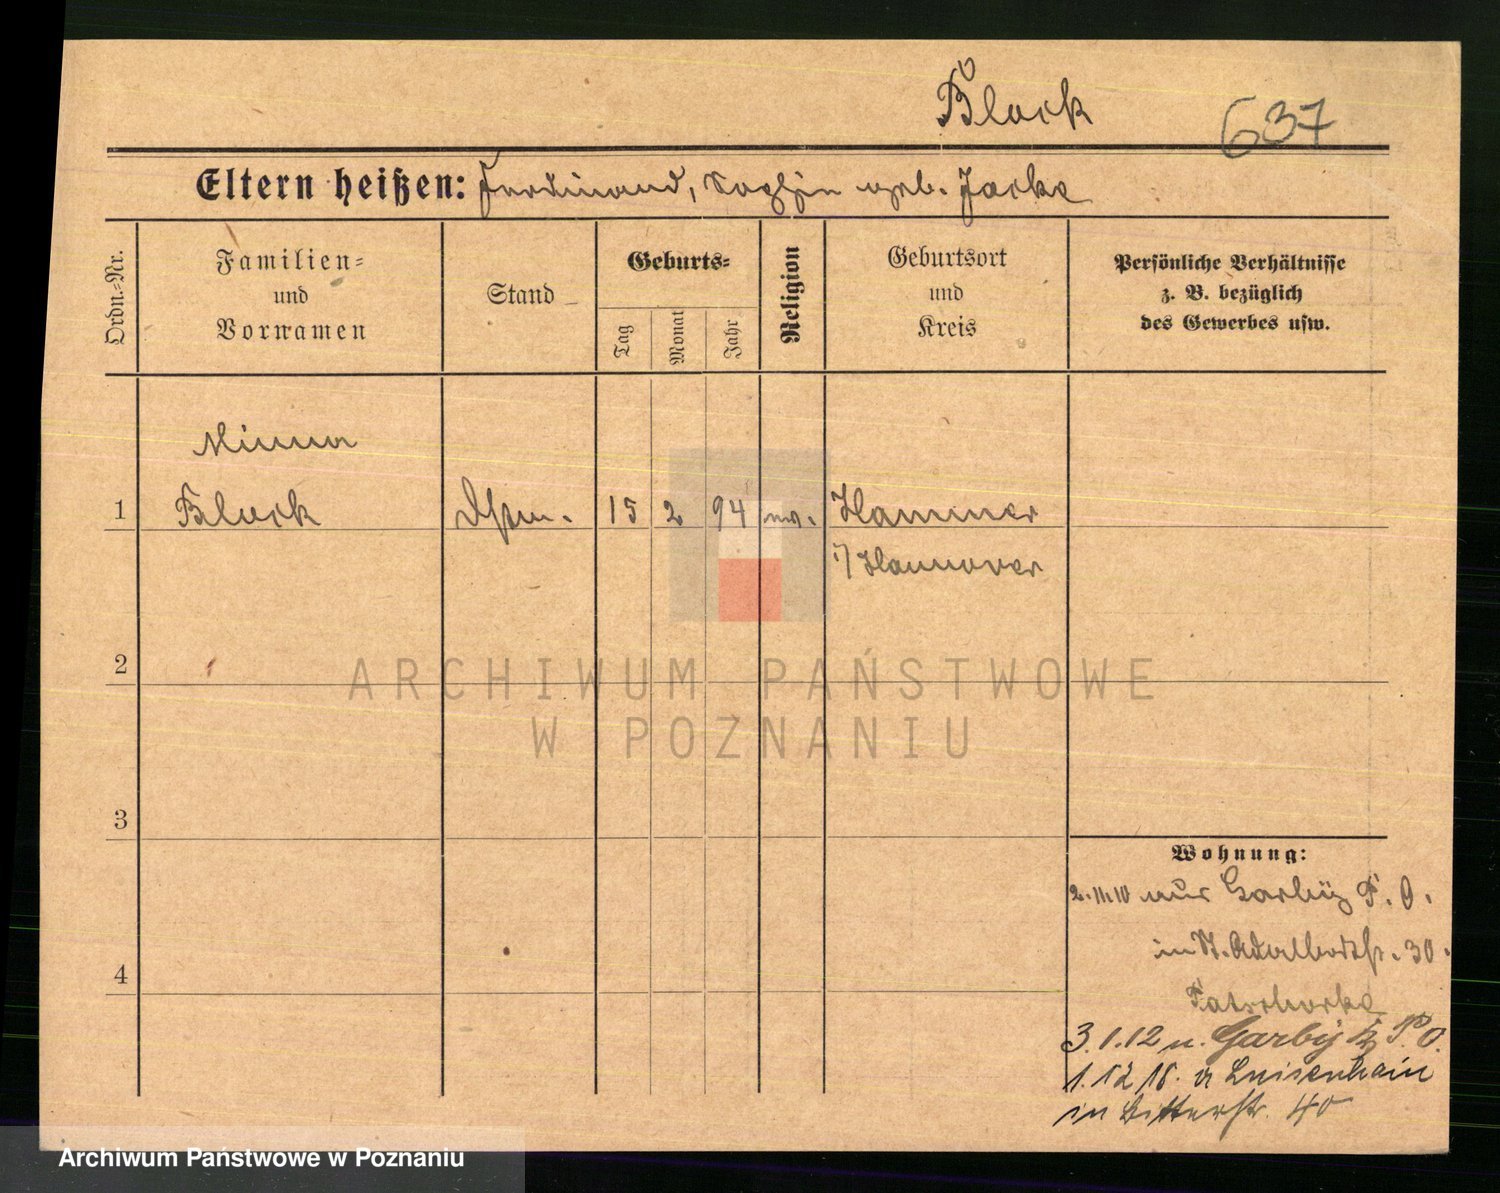 Block
637
Eltern heißen: Ferdinand, Sophie geb. Jacke
Ordn.=Nr.
Familien=
und
Vornamen
Stand
Geburts=
Tag
Monat
Jahr
Religion
Geburtsort
und
Kreis
Persönliche Verhältnisse
z. B. bezüglich
des Gewerbes usw.
Minna
1 Block 15 2 94 Hammer
i/Hannover
2
3
4
Wohnung:
2.11.10 aus P. O.
in St. Adalbertstr. 30.
3.1.12 n. P. O.
Luisenhain
in Ritterstr. 40
ARCHIWUM PAŃSTWOWE
W POZNANIU
Archiwum Państwowe w Poznaniu